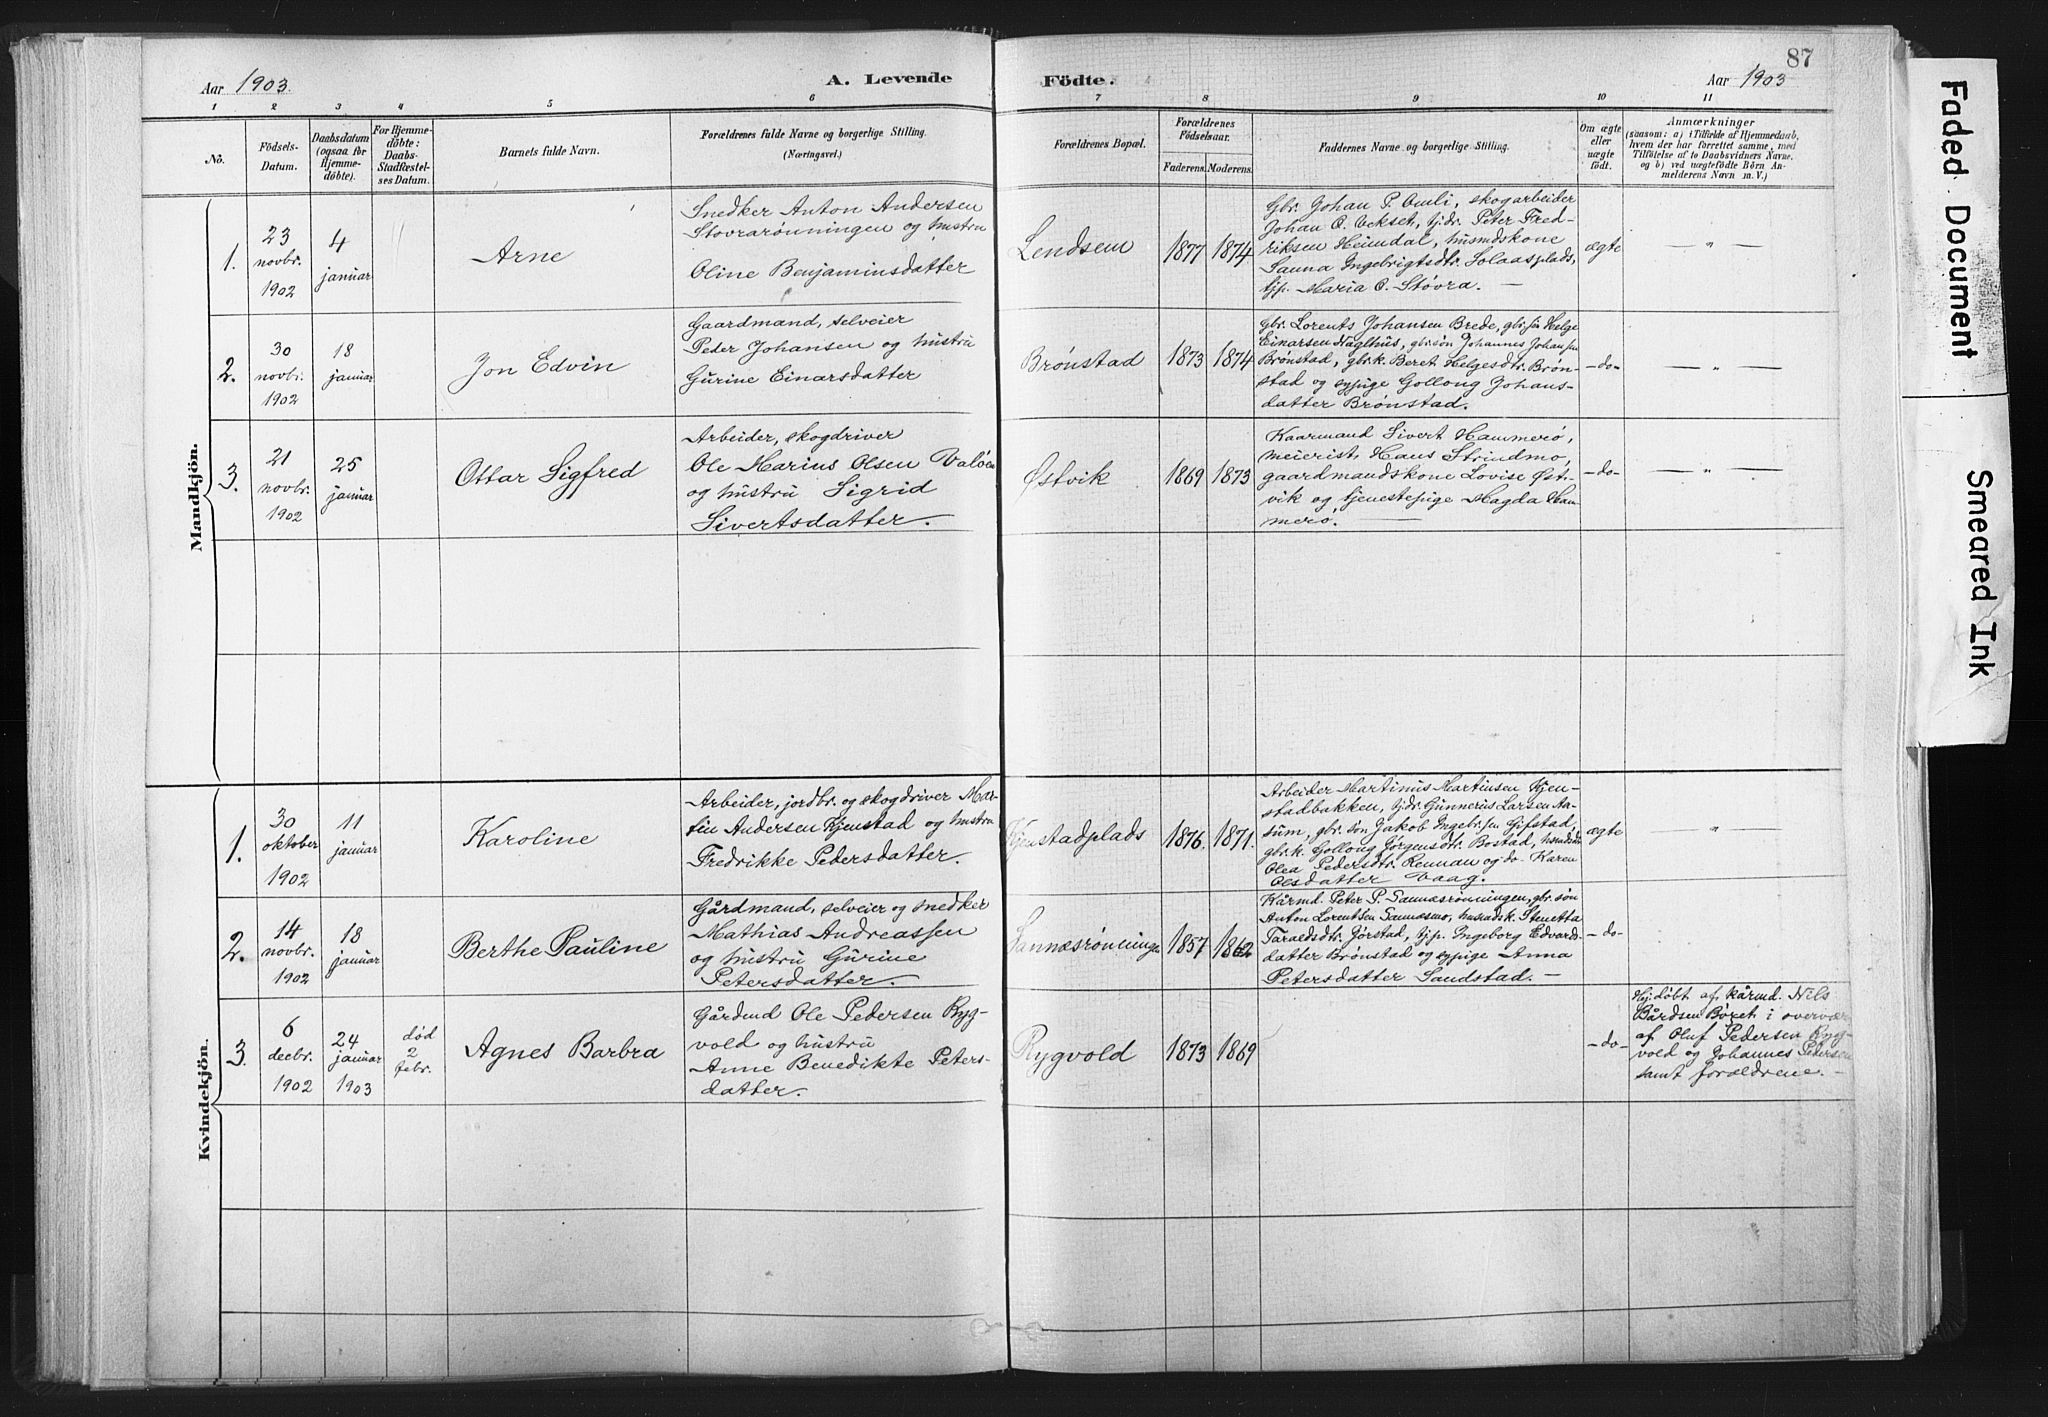 87
Aar 1903.
A. Levende
Födte.
Aar 1903
1 2 3 4 5 6 7 8 9 10 11
No.
Födsels-
Datum.
Daabsdatum
(ogsaa for
Hjemme-
döbte).
For Hjemme-
döbte:
Daabs-
Stadfæstel-
ses Datum.
Barnets fulde Navn.
Forældrenes fulde Navne og borgerlige Stilling.
(Næringsvei.)
Forældrenes Bopæl.
Forældrenes
Födselsaar.
Faderens. Moderens.
Faddernes Navne og borgerlige Stilling.
Om ægte
eller
uægte
födt.
Anmærkninger
(saasom: a) i Tilfælde af Hjemmedaab,
hvem der har forrettet samme, med
Tilföielse af to Daabsvidners Navne,
og b) ved uægtefödte Börn An-
melderens Navn m. V.)
Mandkjön.
1.
23
novbr.
1902
4
januar
Arne
Snedker Anton Andersen
Stovrarønningen og hustru
Oline Benjaminsdatter
Lendsem
1877
1874
Gbr. Johan P. , skogarbeider
Johan O. Vekset, tjdr. Peter Fred-
riksen Heimdal, husmdskone
Ingebrigtsdtr. Solaasplads,
tjp. Maria O. Støvra. —
ægte
— " —
2.
30
novbr.
1902
18
januar
Jon Edvin
Gaardmand, selveier
Peder Johansen og hustru
Gurine Einarsdatter
Brønstad
1873
1874
Gbr. Lorents Johansen Brede, gbr.søn Helge
Einarsen Haglhus, gbr.søn Johannes Johansen
Brønstad, gbr.k. Beret Helgesdtr. Brøn-
stad og sypige Gollong Johans-
datter Brønstad.
- do -
— " —
3.
21
novbr.
1902
25
januar
Ottar Sigfred
Arbeider, skogdriver
Ole Marius Olsen Valøen
og hustru Sigrid
Sivertsdatter.
Østvik
1869
1873
Kaarmand Sivert Hammerø,
meierist Hans Strindmo,
gaardmandskone Lovise Øst-
vik og tjenestepige Magda Ham-
merø. —
- do -
— " —
Kvindekjön.
1.
30
oktober
1902
11
januar
Karoline
Arbeider, jordbr. og skogdriver Mar-
tin Andersen Kjenstad og hustru
Fredrikke Pedersdatter.
Kjenstadplads
1876
1871.
Arbeider Martinus Martinsen Kjen-
stadbakken, tjdr. Gunnerius Larsen Aa-
sum, gbr. søn Jakob Ingebr.sen Gifstad,
gbr.k. Gollong Jørgensdtr. Bostad,
Olea Pedersdtr. Rennan og do. Karen
Olsdatter Vaag.
ægte
— " —
2.
14
novbr.
1902
18
januar
Berthe Pauline
Gårdmand, selveier og snedker
Mathias Andreassen
og hustru Gurine
Petersdatter.
Sannæsrønningen
1857
1862
Kårmd. Peter P. Sannæsrønningen, gbr. søn
Anton Lorentsen Sannæsmo, husmdsk. Stenetta
Taraldsdtr. Jørstad, tjp. Ingeborg Edvards-
datter Brønstad og sypige Anna
Petersdatter Sandstad. —
- do -
3.
6
decbr.
1902
24
januar
1903
død
2
febr.
Agnes Barbra
Gårdmd Ole Pedersen Ryg-
vold og hustru
Anne Benedikte Peters-
datter.
Rygvold
1873
1869
- do -
Hj. døbt af kårmd. Nils
Bårdsen Børet i overvær
af Oluf Pedersen Ryg-
vold og Johannes Petersen
samt forældrene. —
Faded Document
Smeared Ink